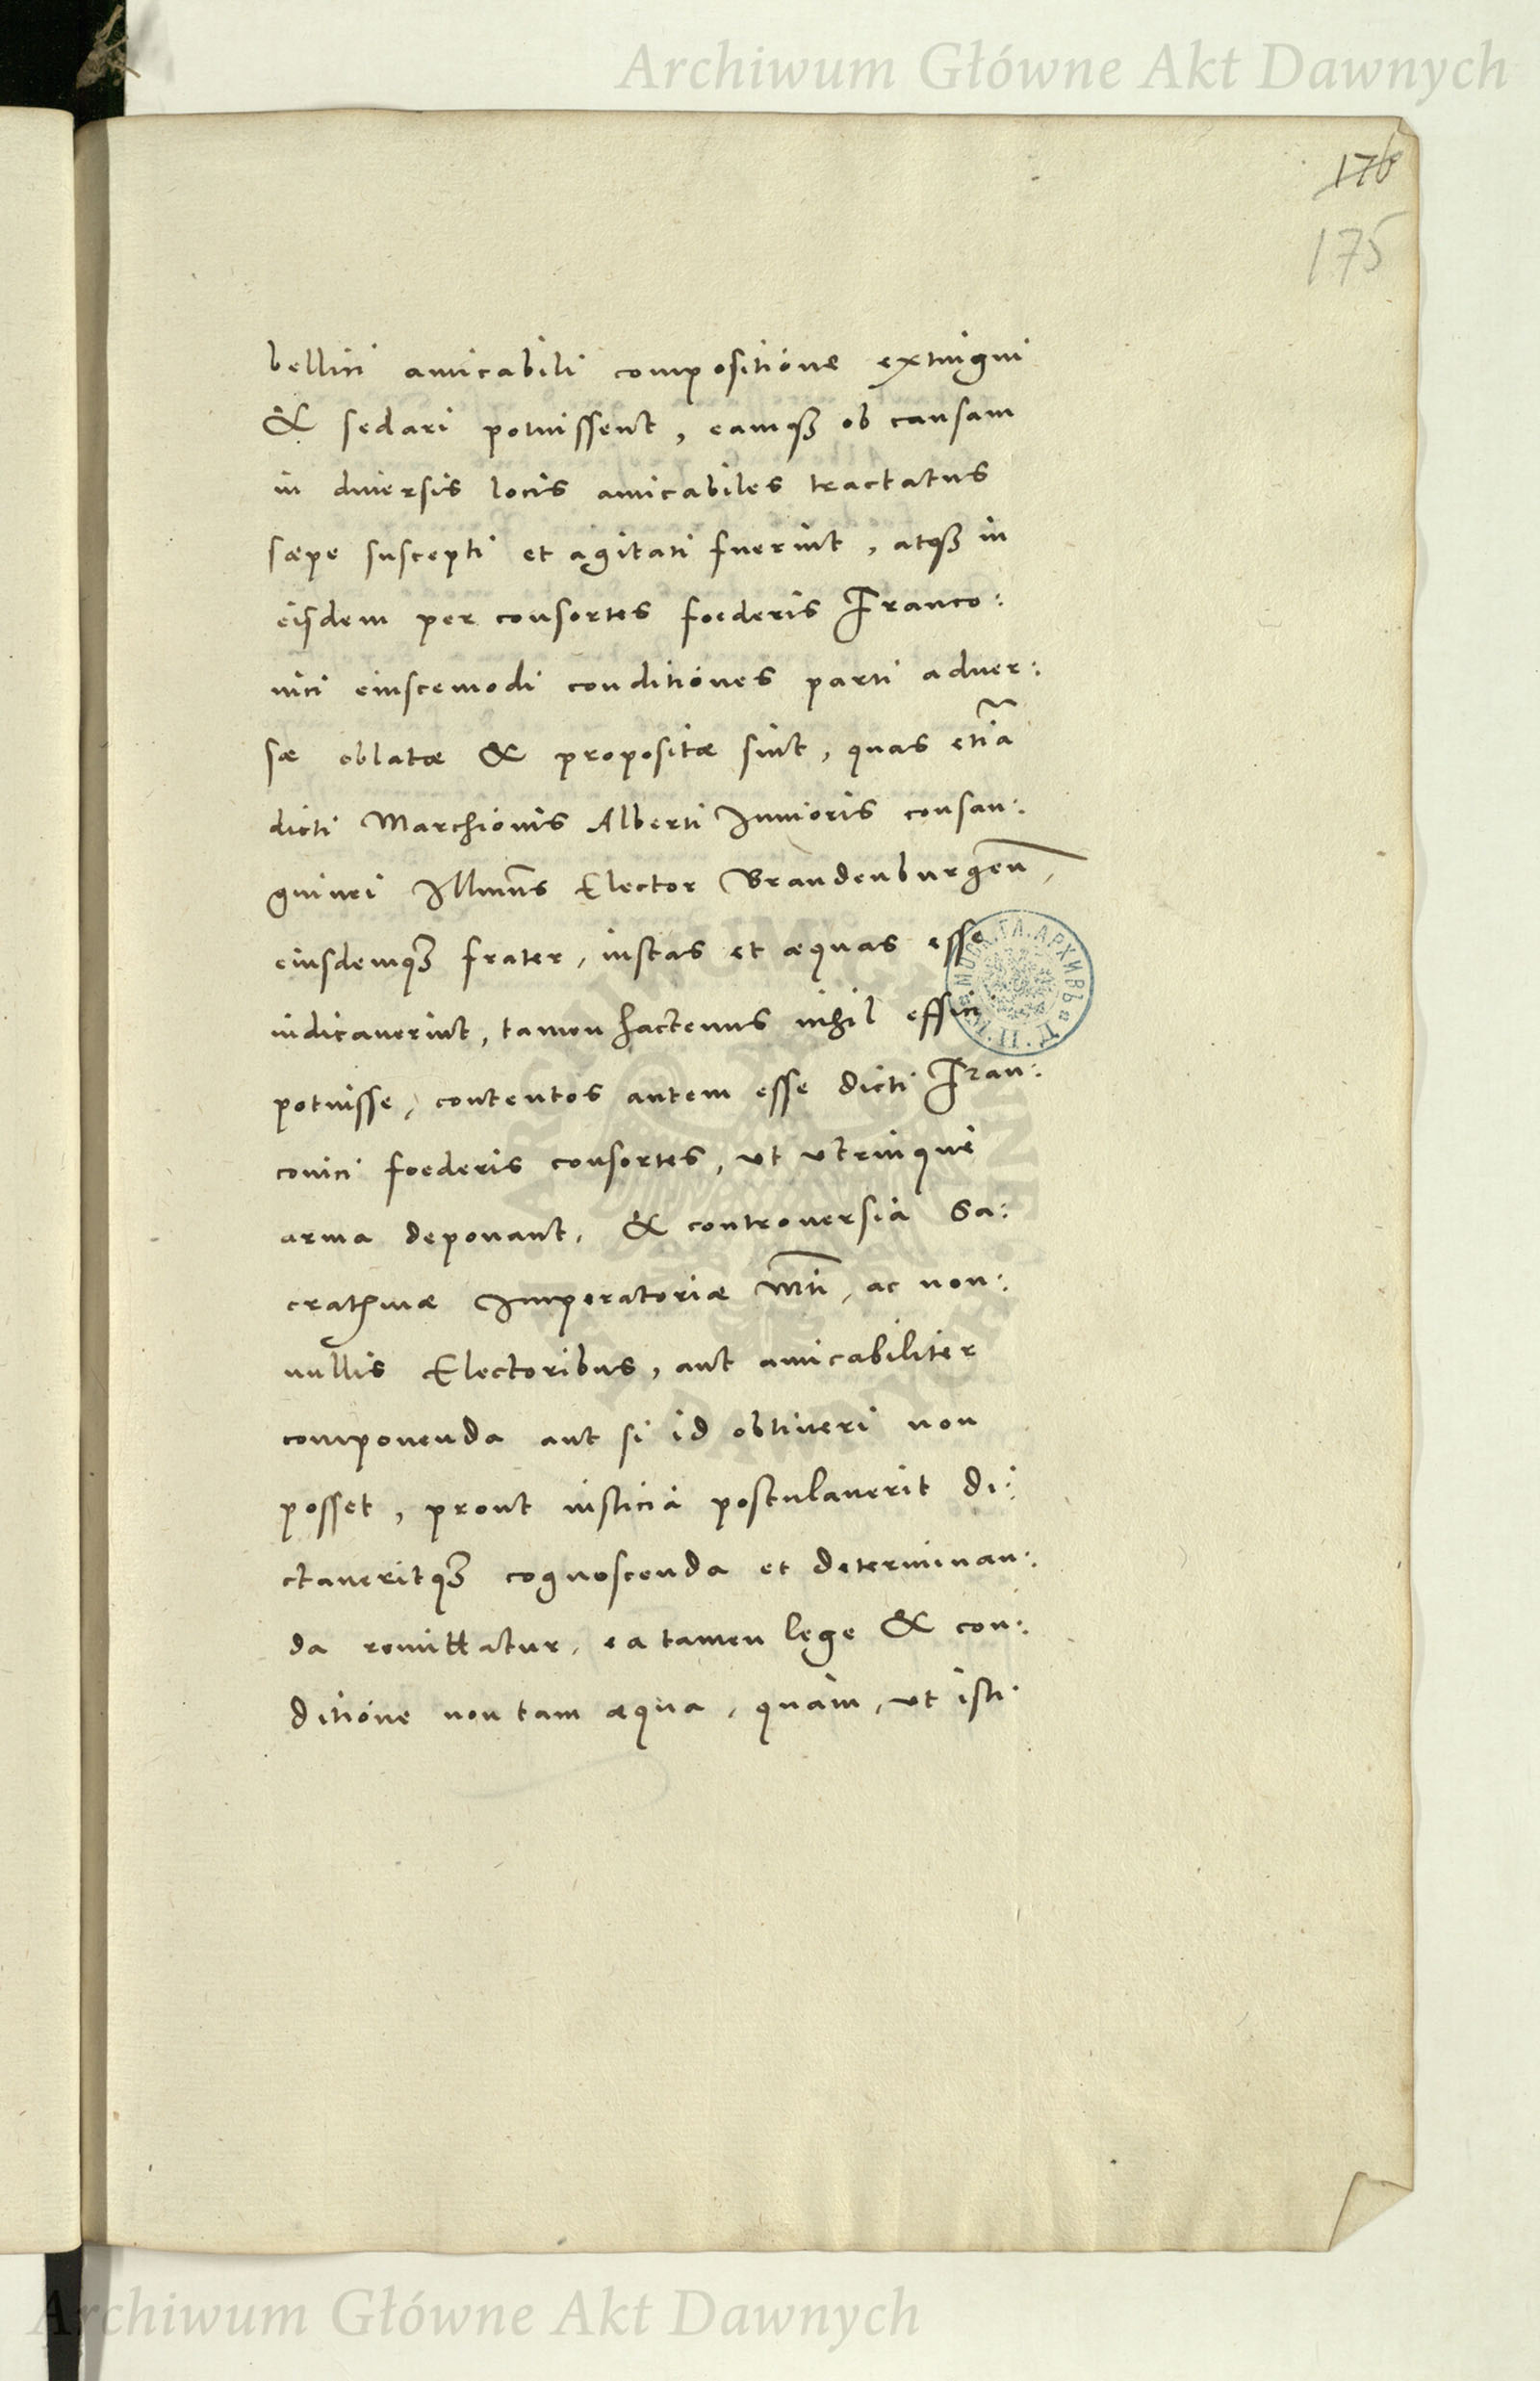 Archiwum Główne Akt Dawnych
176
175
bellici amicabili compositione extingui
& sedari potuissent, eamqȝ ob causam
in diuersis locis amicabiles tractatus
sæpe suscepti et agitati fuerint, atqȝ in
eisdem per consortes foederis Franco:
nici eiuscemodi conditiones parti aduer:
sæ oblatæ & propositæ sint, quas etiã
dicti Marchionis Alberti Iunioris consan:
guinei Illmus Elector Brandenburgen̄,
eiusdemqȝ frater, iustas et æquas esse
iudicauerint, tamen hactenus nihil effici
potuisse, contentos autem esse dicti Fran:
conici foederis consortes, ut utrinque
arma deponant, & controuersia Sa:
cratᵐæ Imperatoriæ Mti, ac non:
nullis Electoribus, aut amicabiliter
componenda aut si id obtineri non
posset, prout iusticia postulauerit di:
ctaueritqȝ cognoscenda et determinan:
da remittatur, ea tamen lege & con:
ditione non tam æqua, quàm, ut isti
Archiwum Główne Akt Dawnych